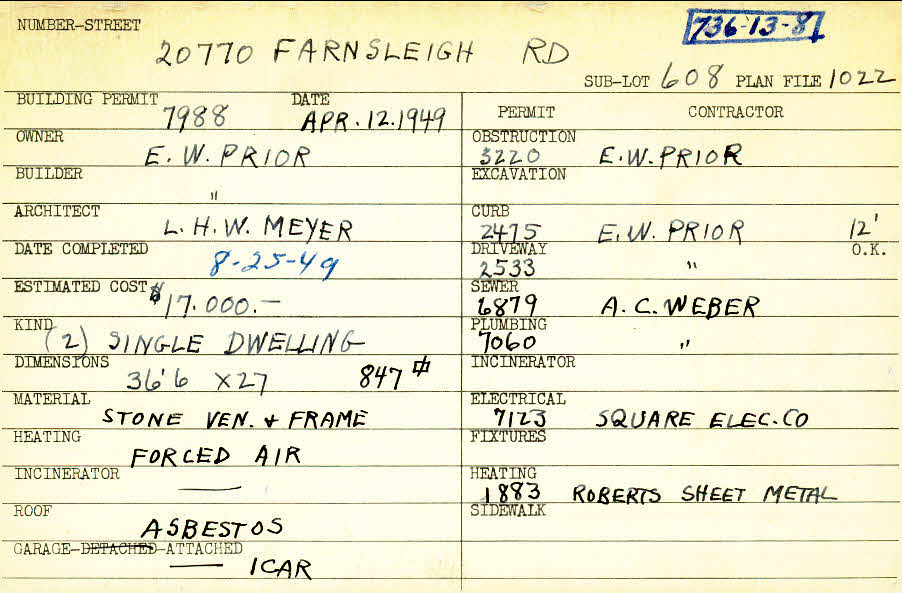 NUMBER-STREET
736-13-87
20770 FARNSLEIGH RD
SUB-LOT 608 PLAN FILE 1022
BUILDING PERMIT DATE
7988 APR. 12. 1949
OWNER
E. W. PRIOR
BUILDER
"
ARCHITECT
L. H. W. MEYER
DATE COMPLETED
8-25-49
ESTIMATED COST
$17.000.—
KIND
(2) SINGLE DWELLING
DIMENSIONS
36'6 X 27 847
MATERIAL
STONE VEN. & FRAME
HEATING
FORCED AIR
INCINERATOR
—
ROOF
ASBESTOS
GARAGE-DETACHED-ATTACHED
— 1CAR
PERMIT CONTRACTOR
OBSTRUCTION
3220 E. W. PRIOR
EXCAVATION
CURB
2475 E. W. PRIOR 12'
DRIVEWAY O.K.
2533 "
SEWER
6879 A. C. WEBER
PLUMBING
7060 "
INCINERATOR
ELECTRICAL
7123 SQUARE ELEC. CO
FIXTURES
HEATING
1883 ROBERTS SHEET METAL
SIDEWALK